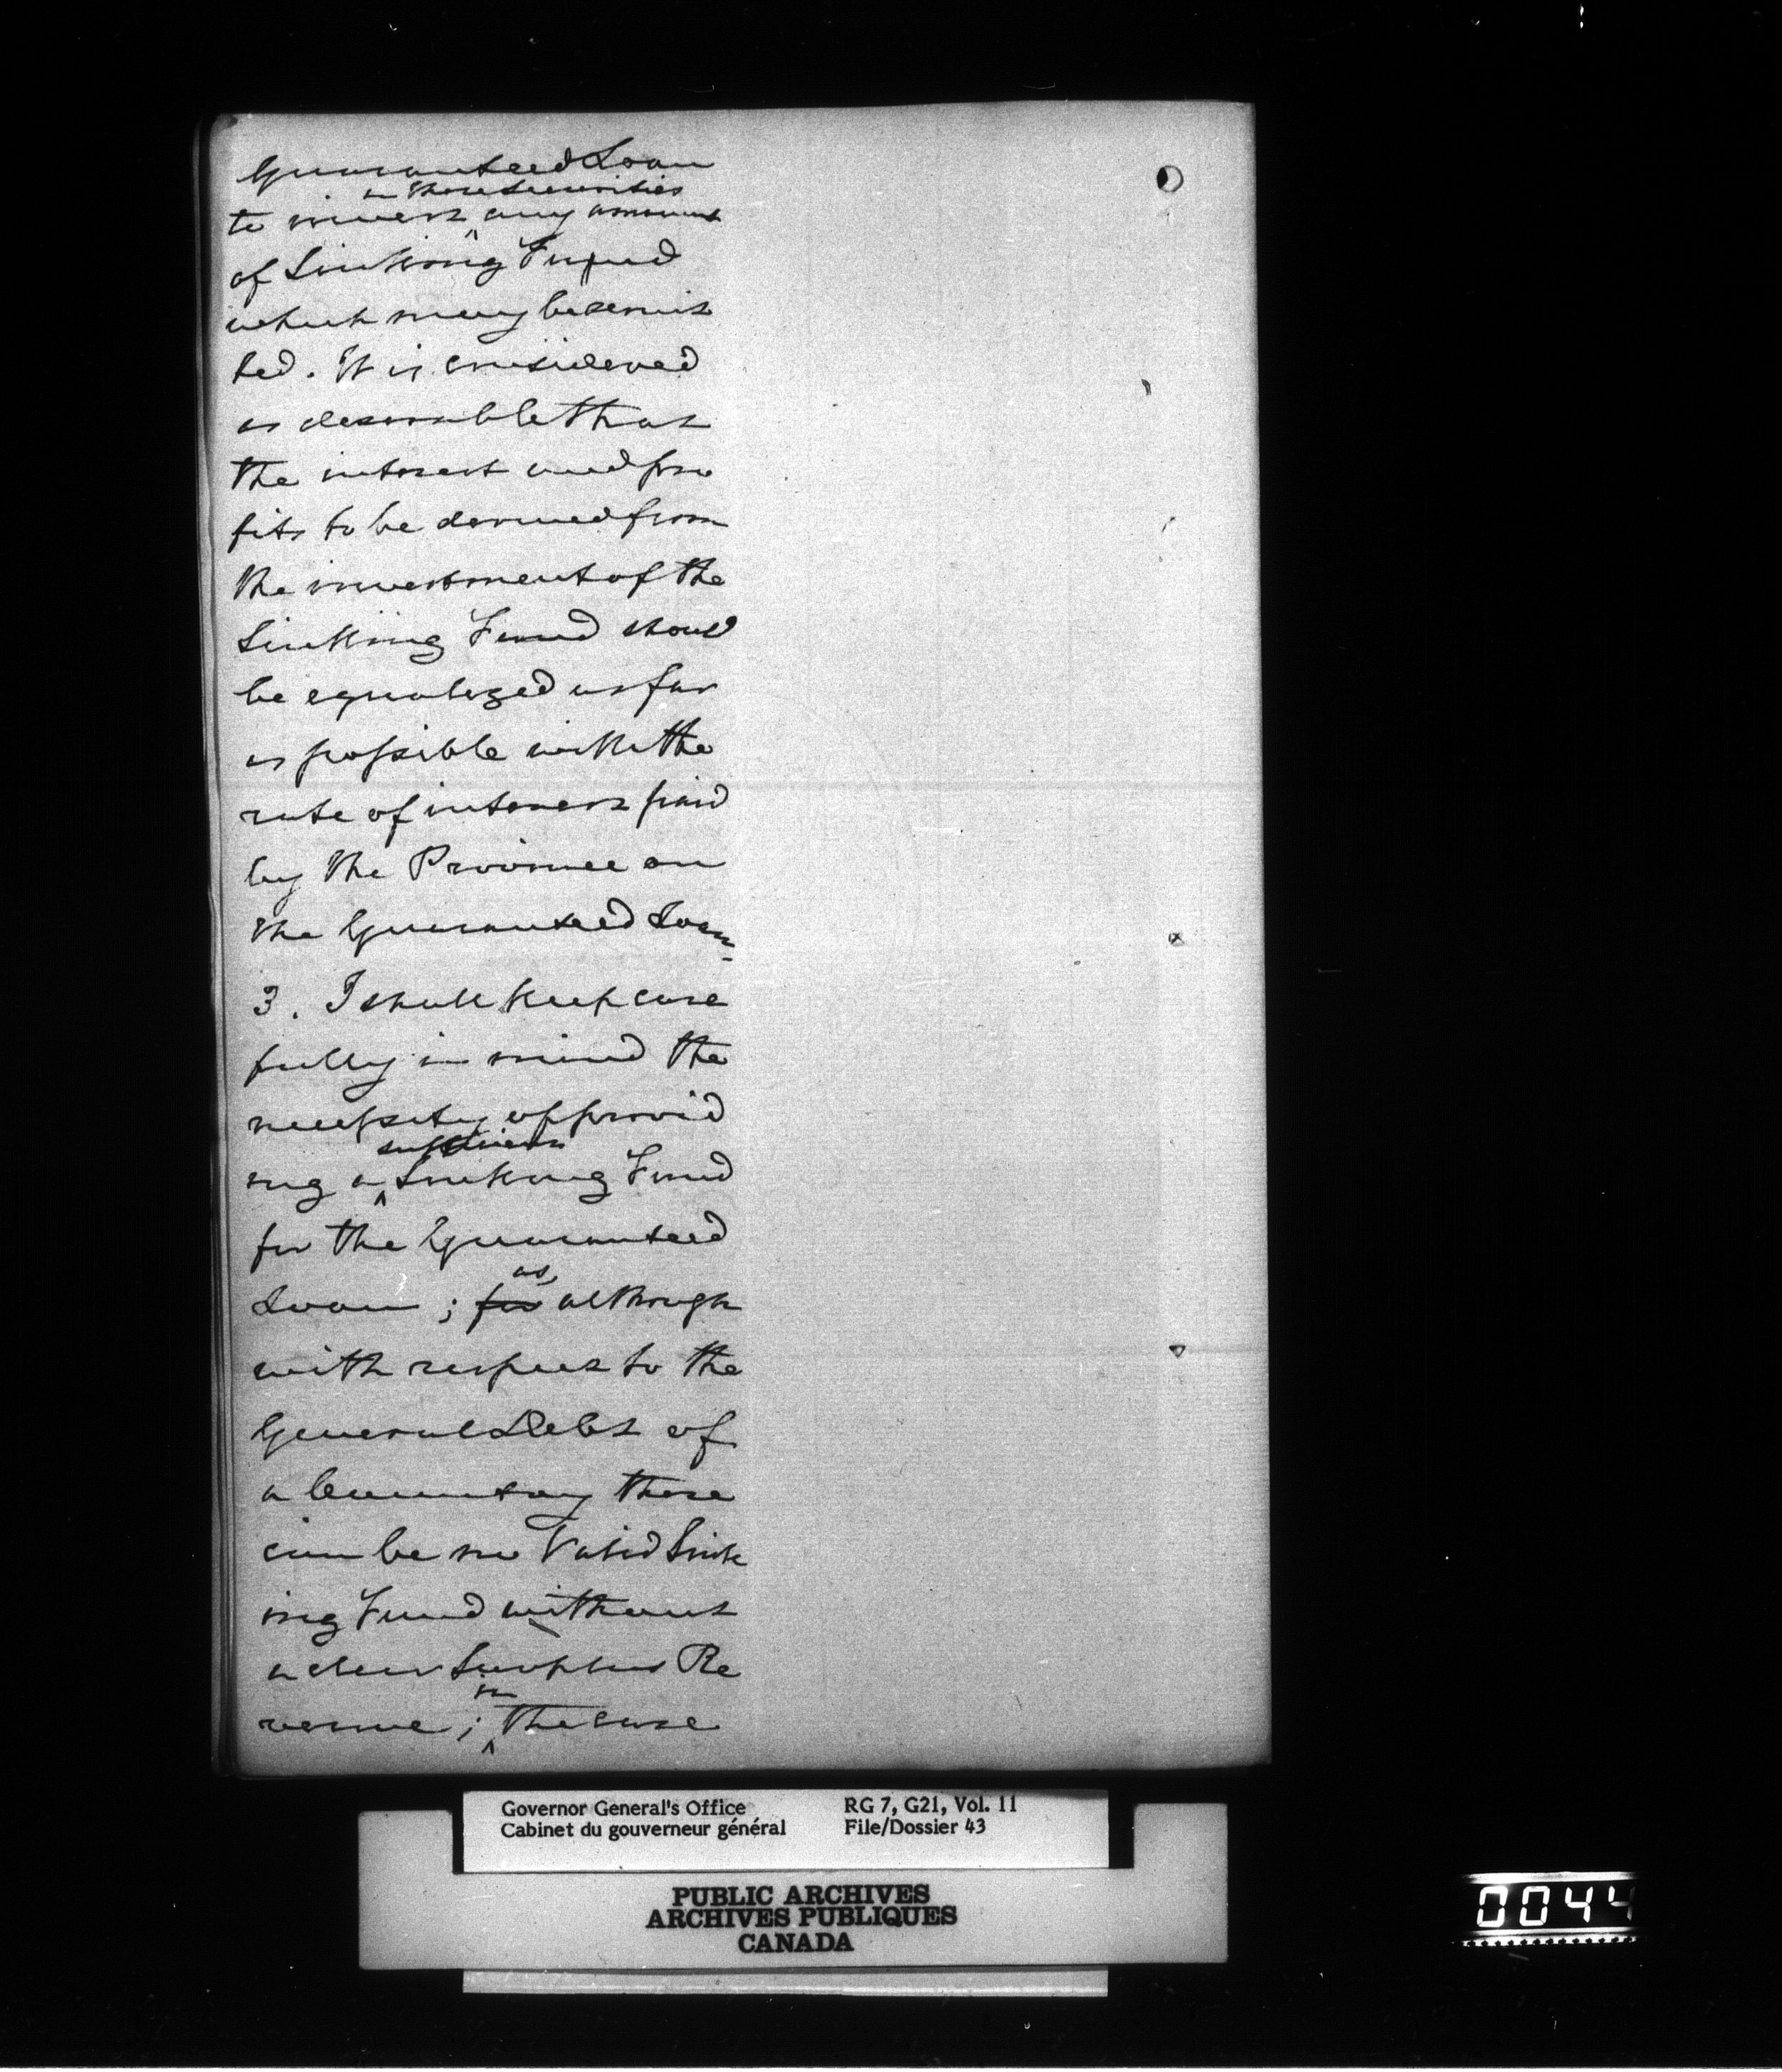 Guaranteed Loan
in those securities
to invest any amount
of Sinking Fund
which may be remit
ted. It is considered
as desirable that
the interest and pro
fits to be derived from
the investment of the
Sinking Fund should
be equalized as far
as possible with the
rate of interest paid
by the Province on
the Guaranteed Loan
3. I shall keep care
fully in mind the
necessity of provid
sufficient
ing a Sinking Fund
for the Guaranteed
as
Loan ; for although
with respect to the
General Debt of
a Country there
can be no Valid Sink
ing Fund without
a clear Surplus Re
in
venue ; the case
Governor General's Office
Cabinet du gouverneur général
RG 7, G21, Vol. 11
File/Dossier 43
PUBLIC ARCHIVES
ARCHIVES PUBLIQUES
CANADA
0044